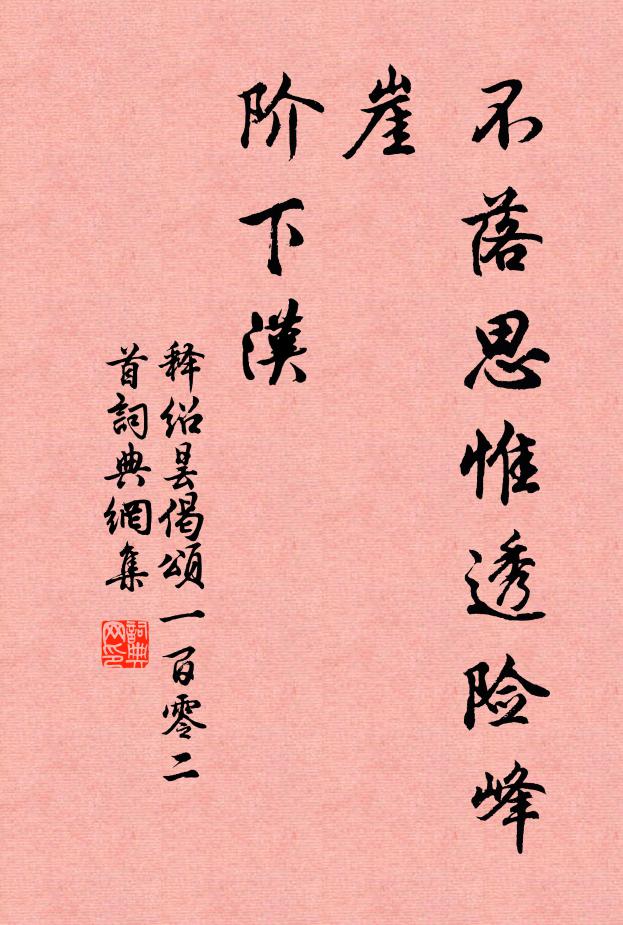 不落思惟透险峰
崖
阶下漠
释绍昙偈颂一百零二
首詞典網集
詞典网印